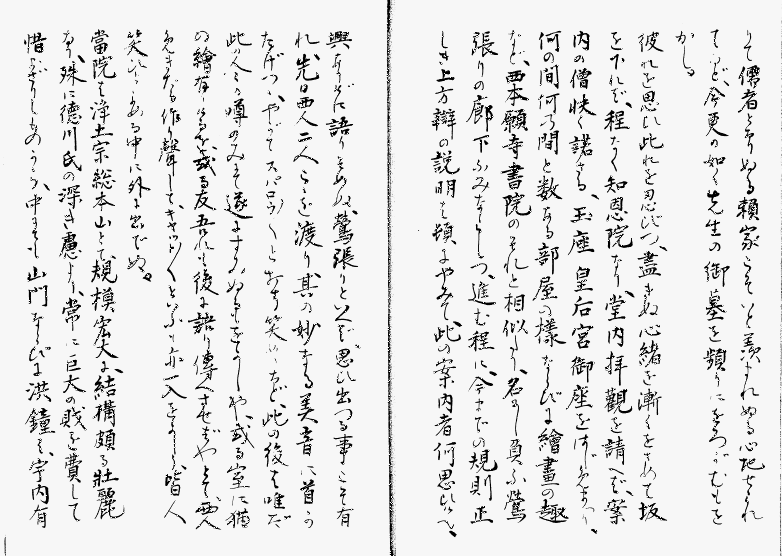 りて儒者となりぬる頼家こそいと羨まれぬる心地せられ
てなど今更の如く先生の御墓を頻りにをろがむもを
かし
彼れを思ひ此れを思ひつ、盡きぬ心緒を漸くをさめて坂
を下れば、程なく知恩院なり、堂内拝觀を請へば、案
内の僧快く諾する、玉座皇后宮御座をはじめまつり、
何の間何の間と数ある部屋の様ならびに繪畫の趣
など、西本願寺書院のそれと相似より、名にし負ふ鶯
張りの廊下ふみならしつ、進む程に、今までの規則正
しき上方辯の説明は頓にやみて、此の案内者何思ひけん、
興ありげに語りそめぬ、鶯張りといへば思ひ出つる事こそ有
れ、先日西人二人こを渡り其の妙なる美音に首を
たげつ、やがてスバロウ〱と打ち笑めりなど、此の後は唯だ
此人々の噂のみにて遂にすみぬ
の繪有りけるを、或る友吾れも後に語り傳へさせばやとて西人
めきたる作り聲してキャット〱といふに亦一入をかしく皆人
笑ひくある中に外に出でぬ
當院は浄土宗総本山とて規模宏大に、結構頗る壮麗
なり、殊に徳川氏の深き慮より、常に巨大の賎を費して
惜まざりしものから、中にも山門ならびに洪鐘は、宇内有